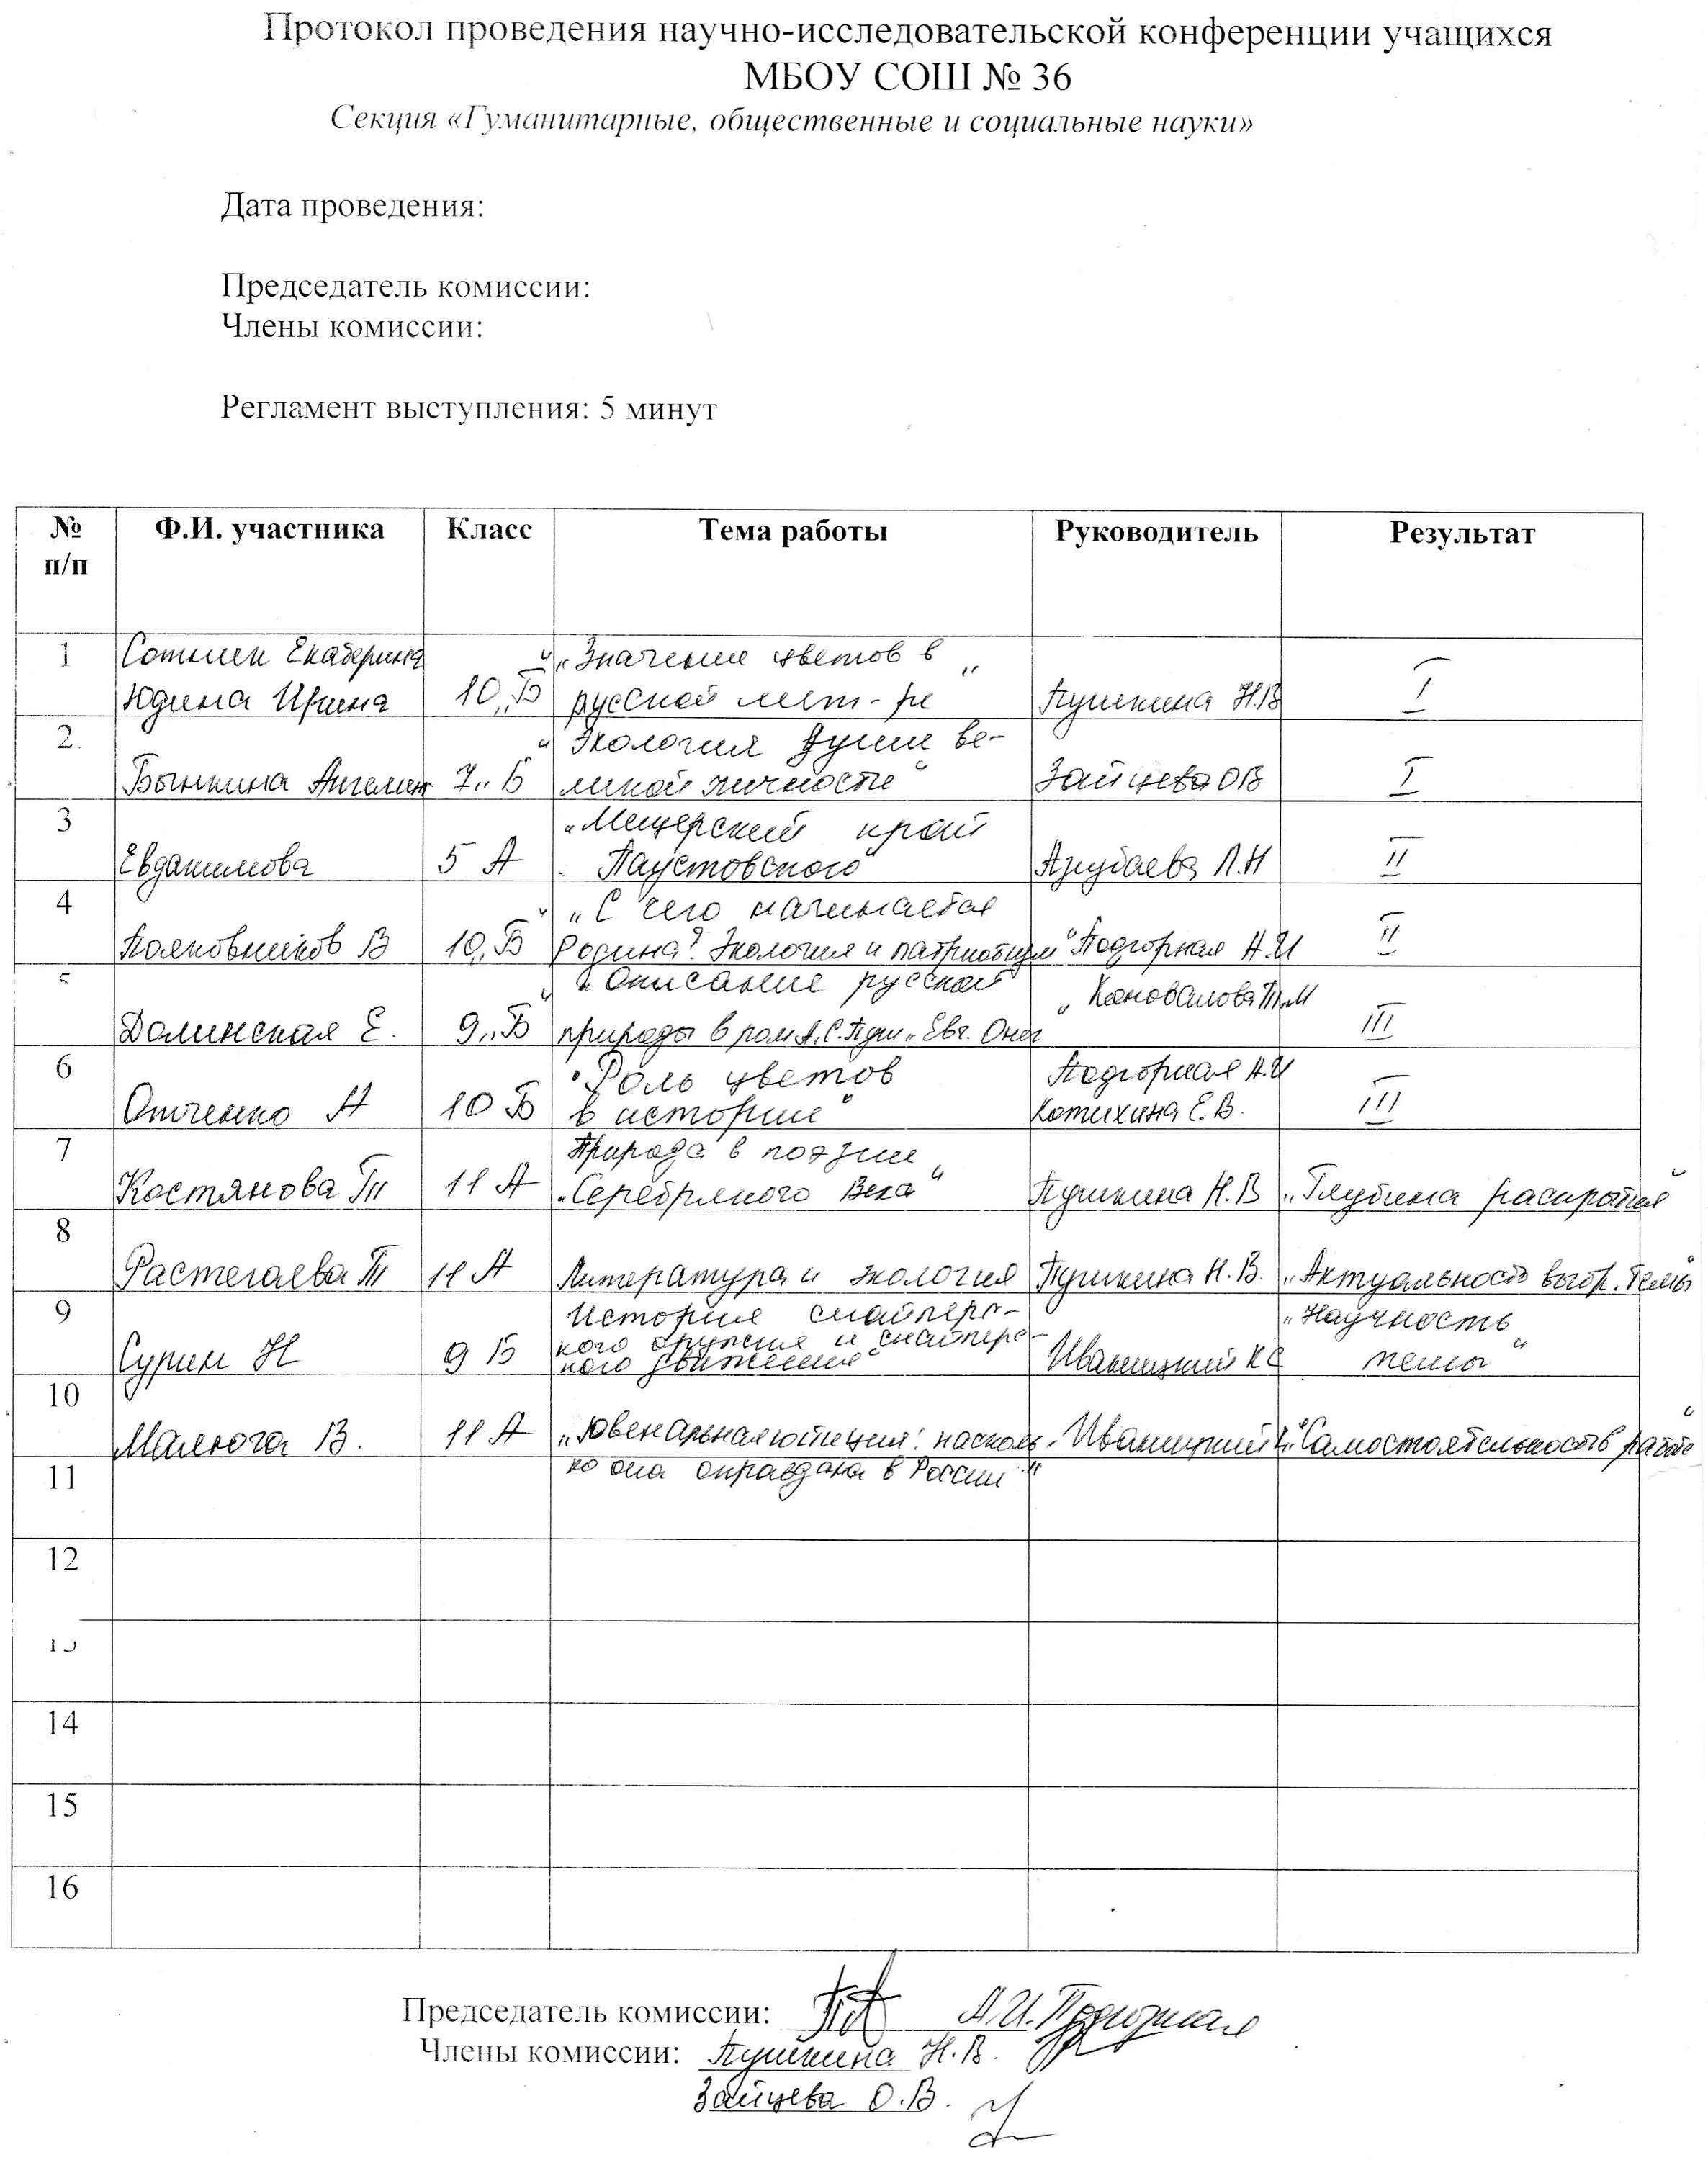 Протокол проведения научно-исследовательской конференции учащихся
МБОУ СОШ № 36
Секция «Гуманитарные, общественные и социальные науки»
Дата проведения:
Председатель комиссии:
Члены комиссии:
Регламент выступления: 5 минут
№ п/п Ф.И. участника Класс Тема работы Руководитель Результат
1 Екатерина „Значение цветов в
Юдина Ирина 10„Б русской лит-ре" Пушкина Н.В I
2. „Экология души ве-
Бынкина Ангелин 7„Б ликой личности" Зайцева О В I
3 „Мещерский край
Евдакимова 5 А Паустовского" Л.Н II
4 „С чего начинается
Полковников В 10„Б Родина? Экология и патриотизм" Подгорная А.И II
5 „Описание русской Коновалова Т.М
Долинская Е. 9„Б природы в ром А.С.Пуш „Евг. Онег III
6 "Роль цветов Подгорная А.И
Отченко А 10 Б в истории" Котихина Е.В. III
7 Природа в поэзии
Костянова Т 11 А „Серебряного Века" Пушкина Н.В „Глубина раскрытия"
8
Растегаева Т 11 А Литература и экология Пушкина Н.В. „Актуальность выбр. темы"
9 История снайперс- „Научность
кого оружия и снайперс-
Сурин Н 9 Б кого движения" Иваницкий К С темы"
10
Малюга В. 11 А „Ювенальная юстиция: насколь- Иваницкий „Самостоятельность в работе"
11 ко она оправдана в России"
12
13
14
15
16
Председатель комиссии: А.И.Подгорная
Члены комиссии: Пушкина Н.В.
Зайцева О.В.